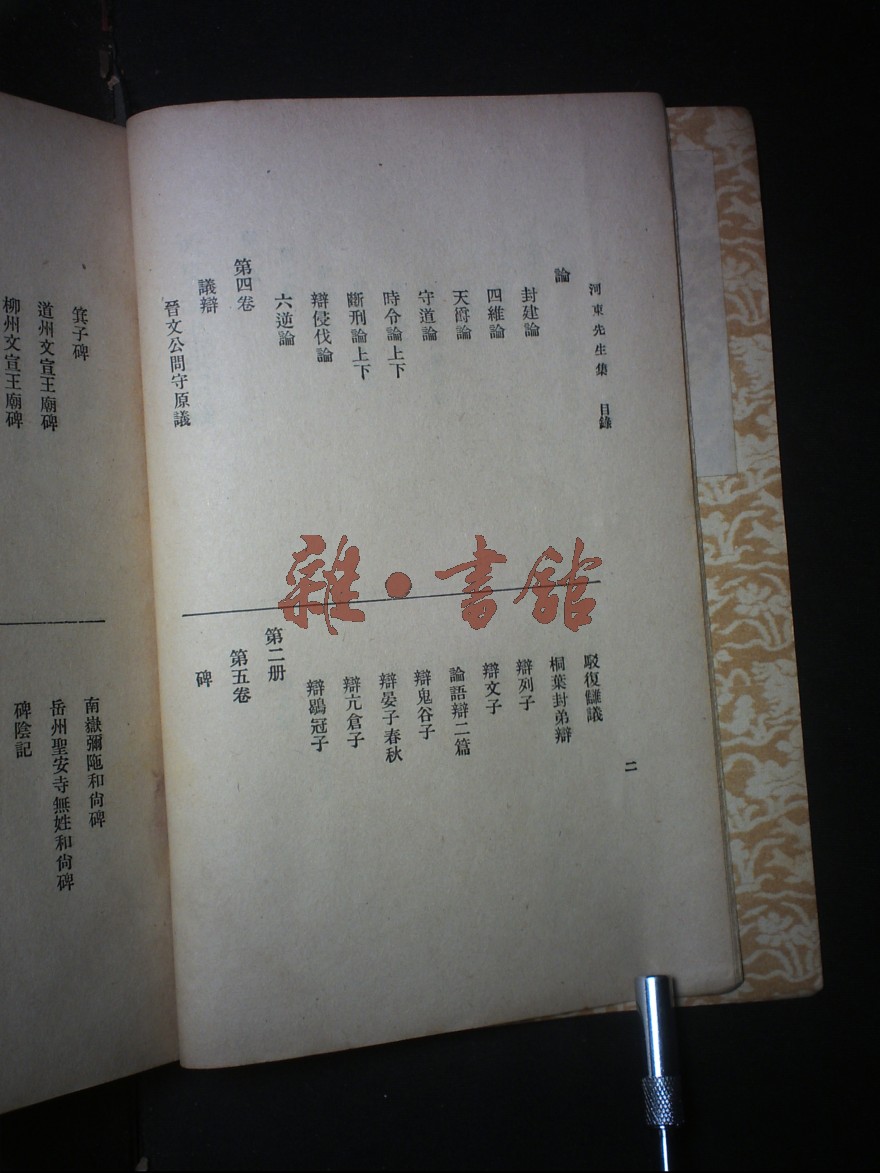 河東先生集 目錄
論
封建論
四維論
天爵論
守道論
時令論上下
斷刑論上下
辯侵伐論
六逆論
第四卷
議辯
晉文公問守原議
二
駁復讎議
桐葉封弟辯
辯列子
辯文子
論語辯二篇
辯鬼谷子
辯晏子春秋
辯亢倉子
辯鶡冠子
第二册
第五卷
碑
箕子碑
道州文宣王廟碑
柳州文宣王廟碑
南嶽彌陁和尙碑
岳州聖安寺無姓和尙碑
碑陰記
雜·書館